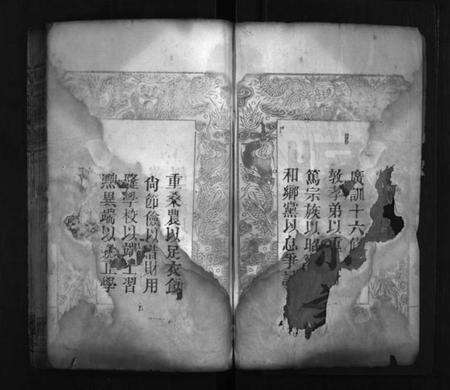 廣訓十六
敦孝弟以重
篤宗族以昭
和鄉黨以息爭
重桑農以足衣食
尙節儉以惜財用
隆學校以端士習
黜異端以崇正學